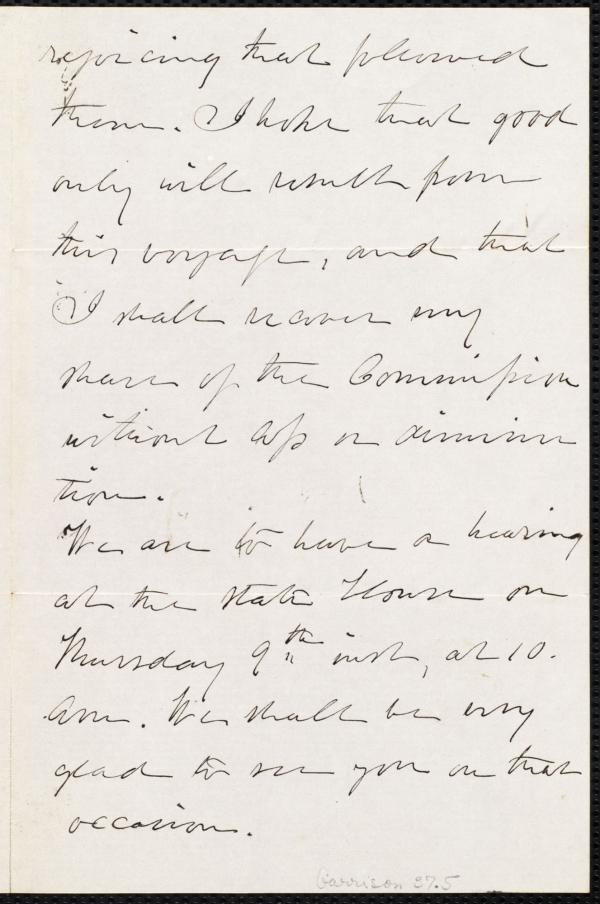 rejoicing that followed
them. I hope that good
only will result from
this voyage, and that
I shall recover my
share of the Commission
without loss or diminu
tion.
We are to have a hearing
at the State House on
Thursday 9th inst, at 10.
Am. We shall be very
glad to see you on that
occasion.
Garrison 37.5